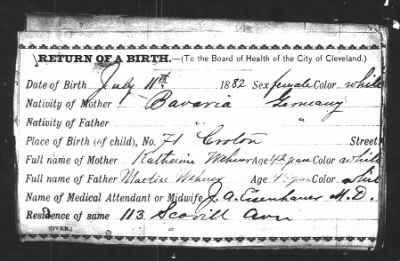 RETURN OF A BIRTH.—(To the Board of Health of the City of Cleveland.)
Date of Birth July 11th 1882 Sex female Color white
Nativity of Mother Bavaria Germany
Nativity of Father " "
Place of Birth (of child), No. 71 Croton Street
Full name of Mother Katherine Age 42 years Color white
Full name of Father Age Color white
Name of Medical Attendant or Midwife J. A. Eisenhauer M.D.
Residence of same 113 Scovill Ave
(OVER.)